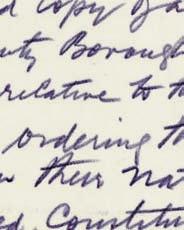 d copy
uty Borough
relative to t
ordering th
their nat
ed. Constitu